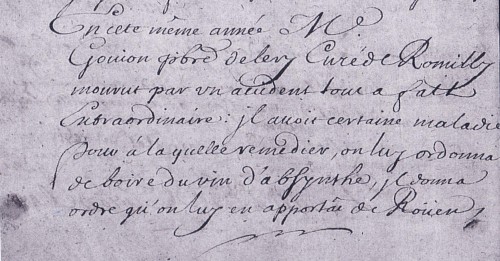 En cete même année Me
Gouion de lery Curé de Romilly
mourut par vn accident tout a fait
Extraordinaire : jl auoit certaine maladie
pour à laquelle remedier, on luy ordonna
de boire du vin d'absynthe, jl donna
ordre qu'on luy en apportât de Roüen